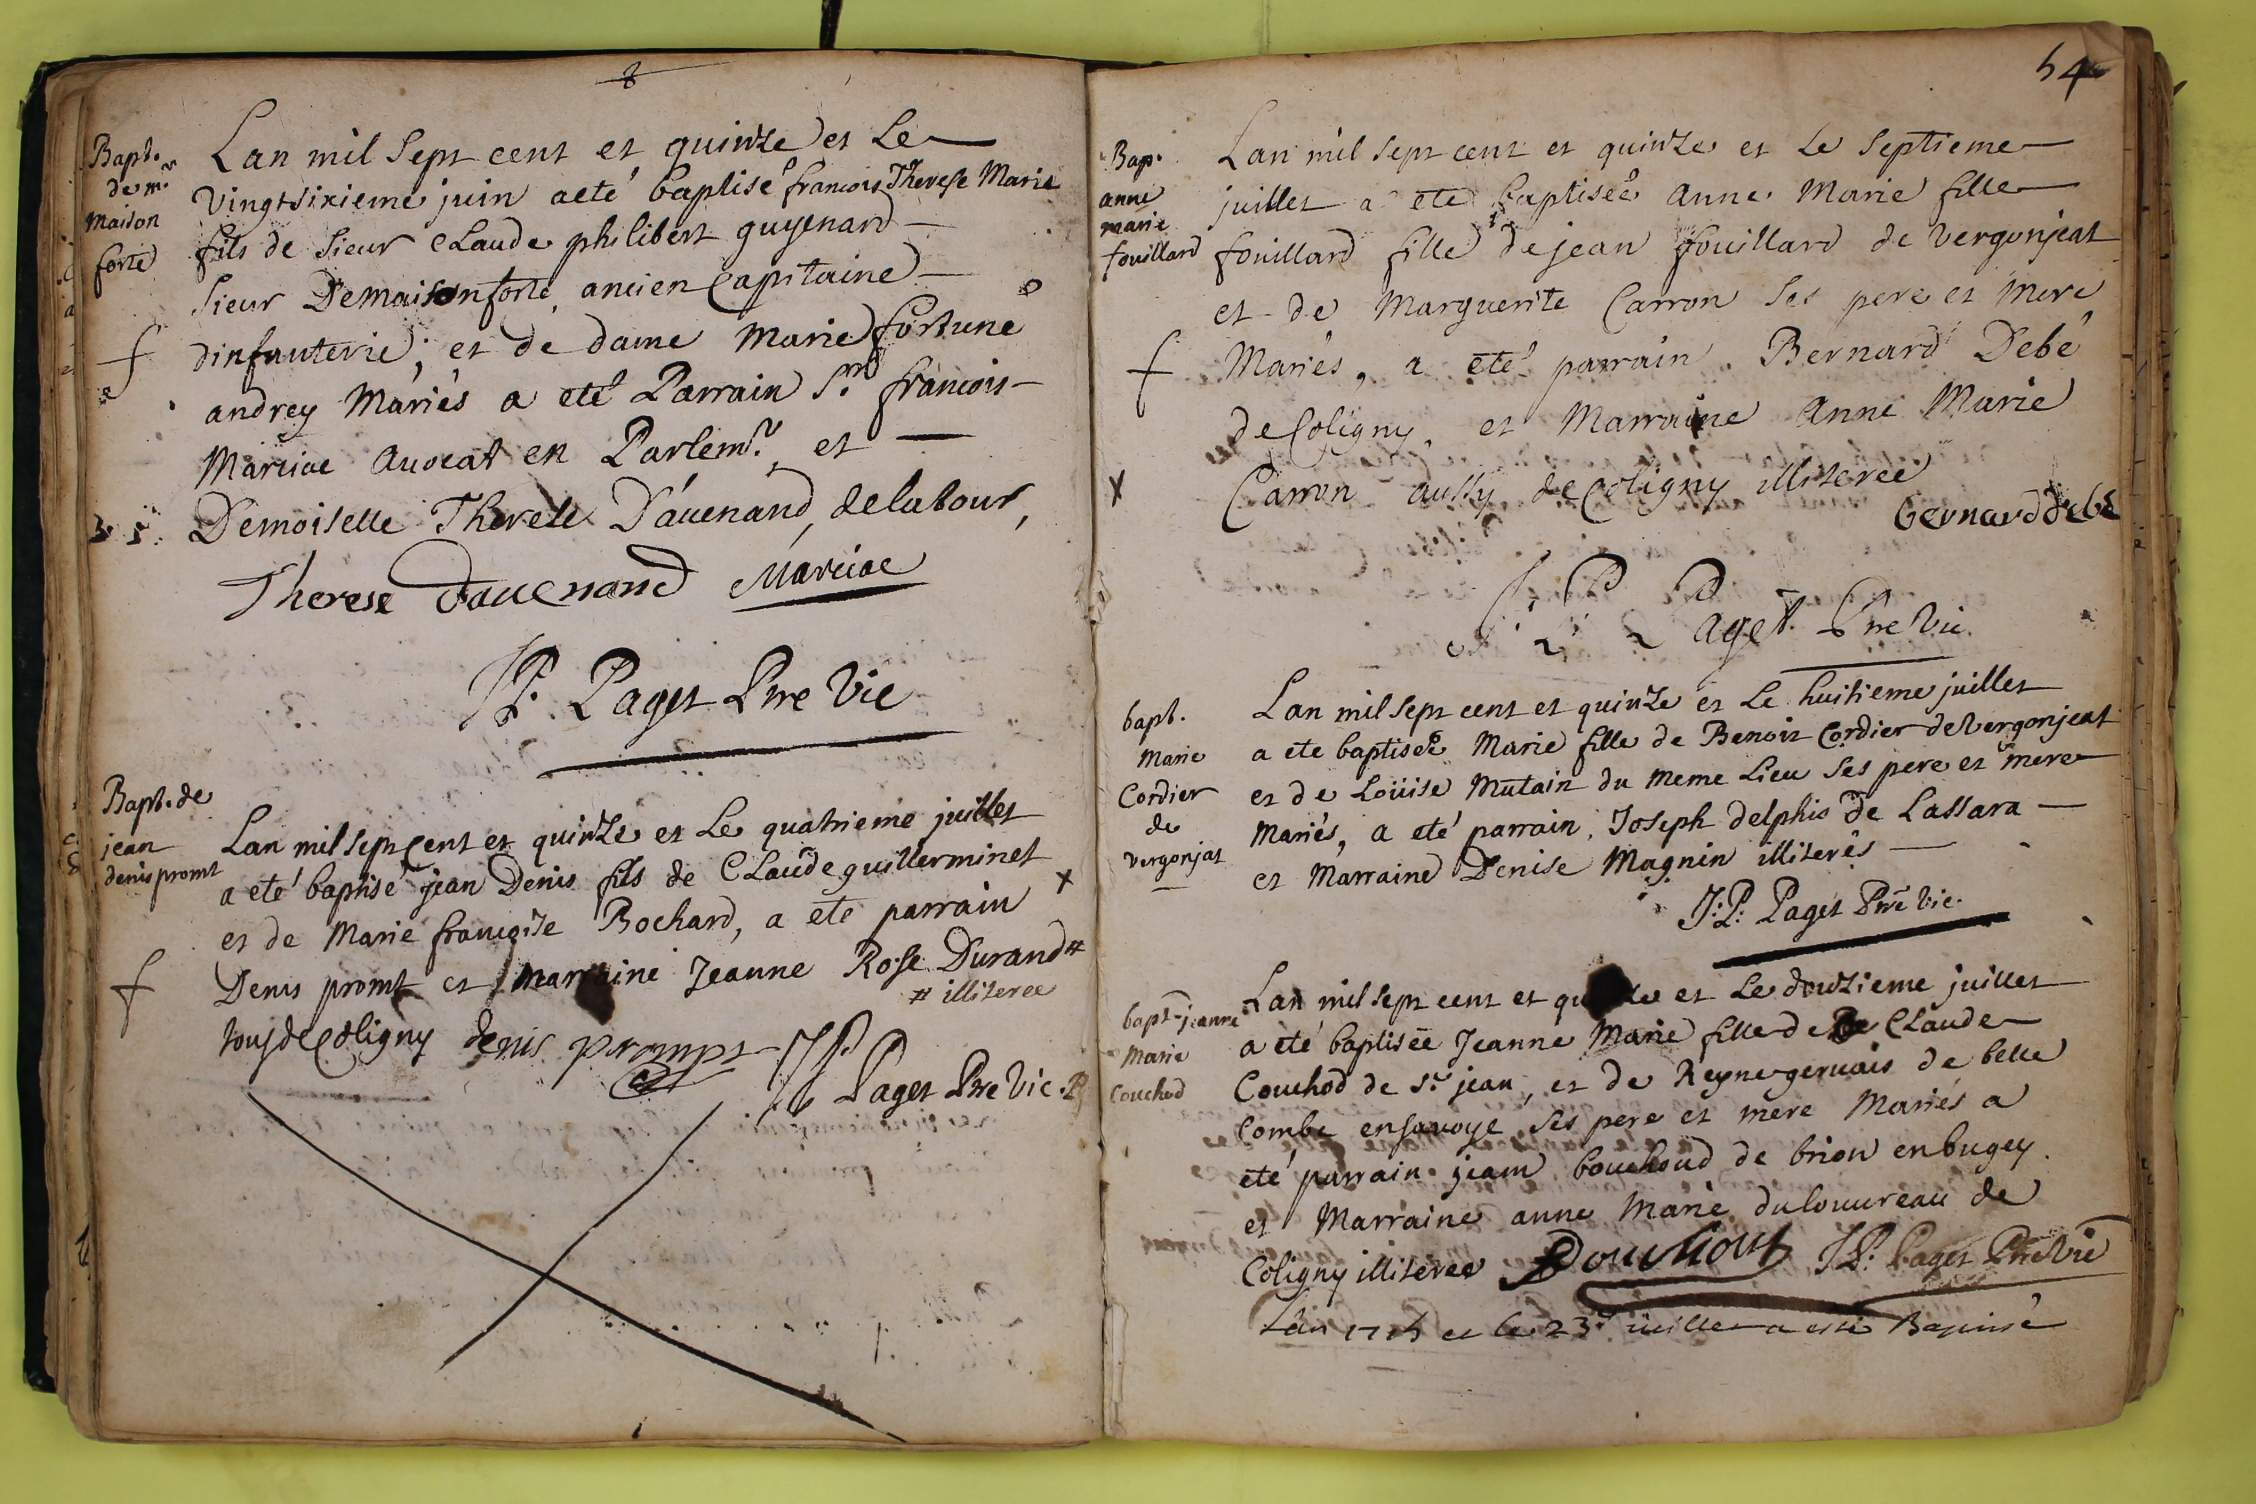 8
Bapt.
de mr
maison
forte
Lan mil Sept cent et quinze et Le
vingtsixieme juin aeté baptisé francois Therese Marie
fils de Sieur Claude philibert guyenard
Sieur Demaisonforte ancien Capitaine
dinfanterie, et de dame Marie fortune
andrey Mariés a eté Parrain Sr. francois
Marciac Auocat en Parlemt. et
Demoiselle Therese D'auenand, delatour,
Therese dauenand Marciac
JP. Paget Pre Vic
Bapt. de
jean
denis promt
Lan mil sept Cent et quinze et Le quatrieme juillet
a eté baptisé jean Denis fils de Claude guillerminet
et de Marie francoise Bochard, a ete parrain
Denis promt et Marraine Jeanne Rose Durand #
# illiteree
tous de Coligny denis prompt JP. Paget Pre Vic.
54
Bap.
anne
marie
fouillard
Lan mil sept cent et quinze et Le Septieme
juillet a ete baptiseé Anne Marie fille
fouillard fille de jean fouillard de vergonjeat
et de Marguerite Carron Ses pere et Mere
Mariés, a eté parrain Bernard Debé
de Coligny, et Marraine Anne Marie
Carron aussy de Coligny illiteree
bernard debé
J. P. Paget. Pre Vic.
bapt.
Marie
Cordier
de
vergonjat
Lan mil sept cent et quinze et Le huitieme juillet
a ete baptiseé Marie fille de Benoit Cordier de Vergonjeat
et de Loüise Mutain du meme Lieu Ses pere et mere
Mariés, a eté parrain Joseph delphis de Lassara
et Marraine Denise Magnin illiterés
J: P: Paget Pre Vic.
bapt. jeanne
Marie
Couchod
Lan mil sept cent et quinze et Le douzieme juillet
a eté baptisée Jeanne Marie fille de Claude
Couchod de St. jean, et de Reyne geruais de belle
Combe en savoye Ses pere et mere Mariés a
eté parrain jean bouchoud de brion en bugey.
et Marraine anne Marie du louureau de
Coligny illiteree Bouchout JP: Paget Pre Vic
Lan 1715 et le 23e. iuillet a esté Baptisé